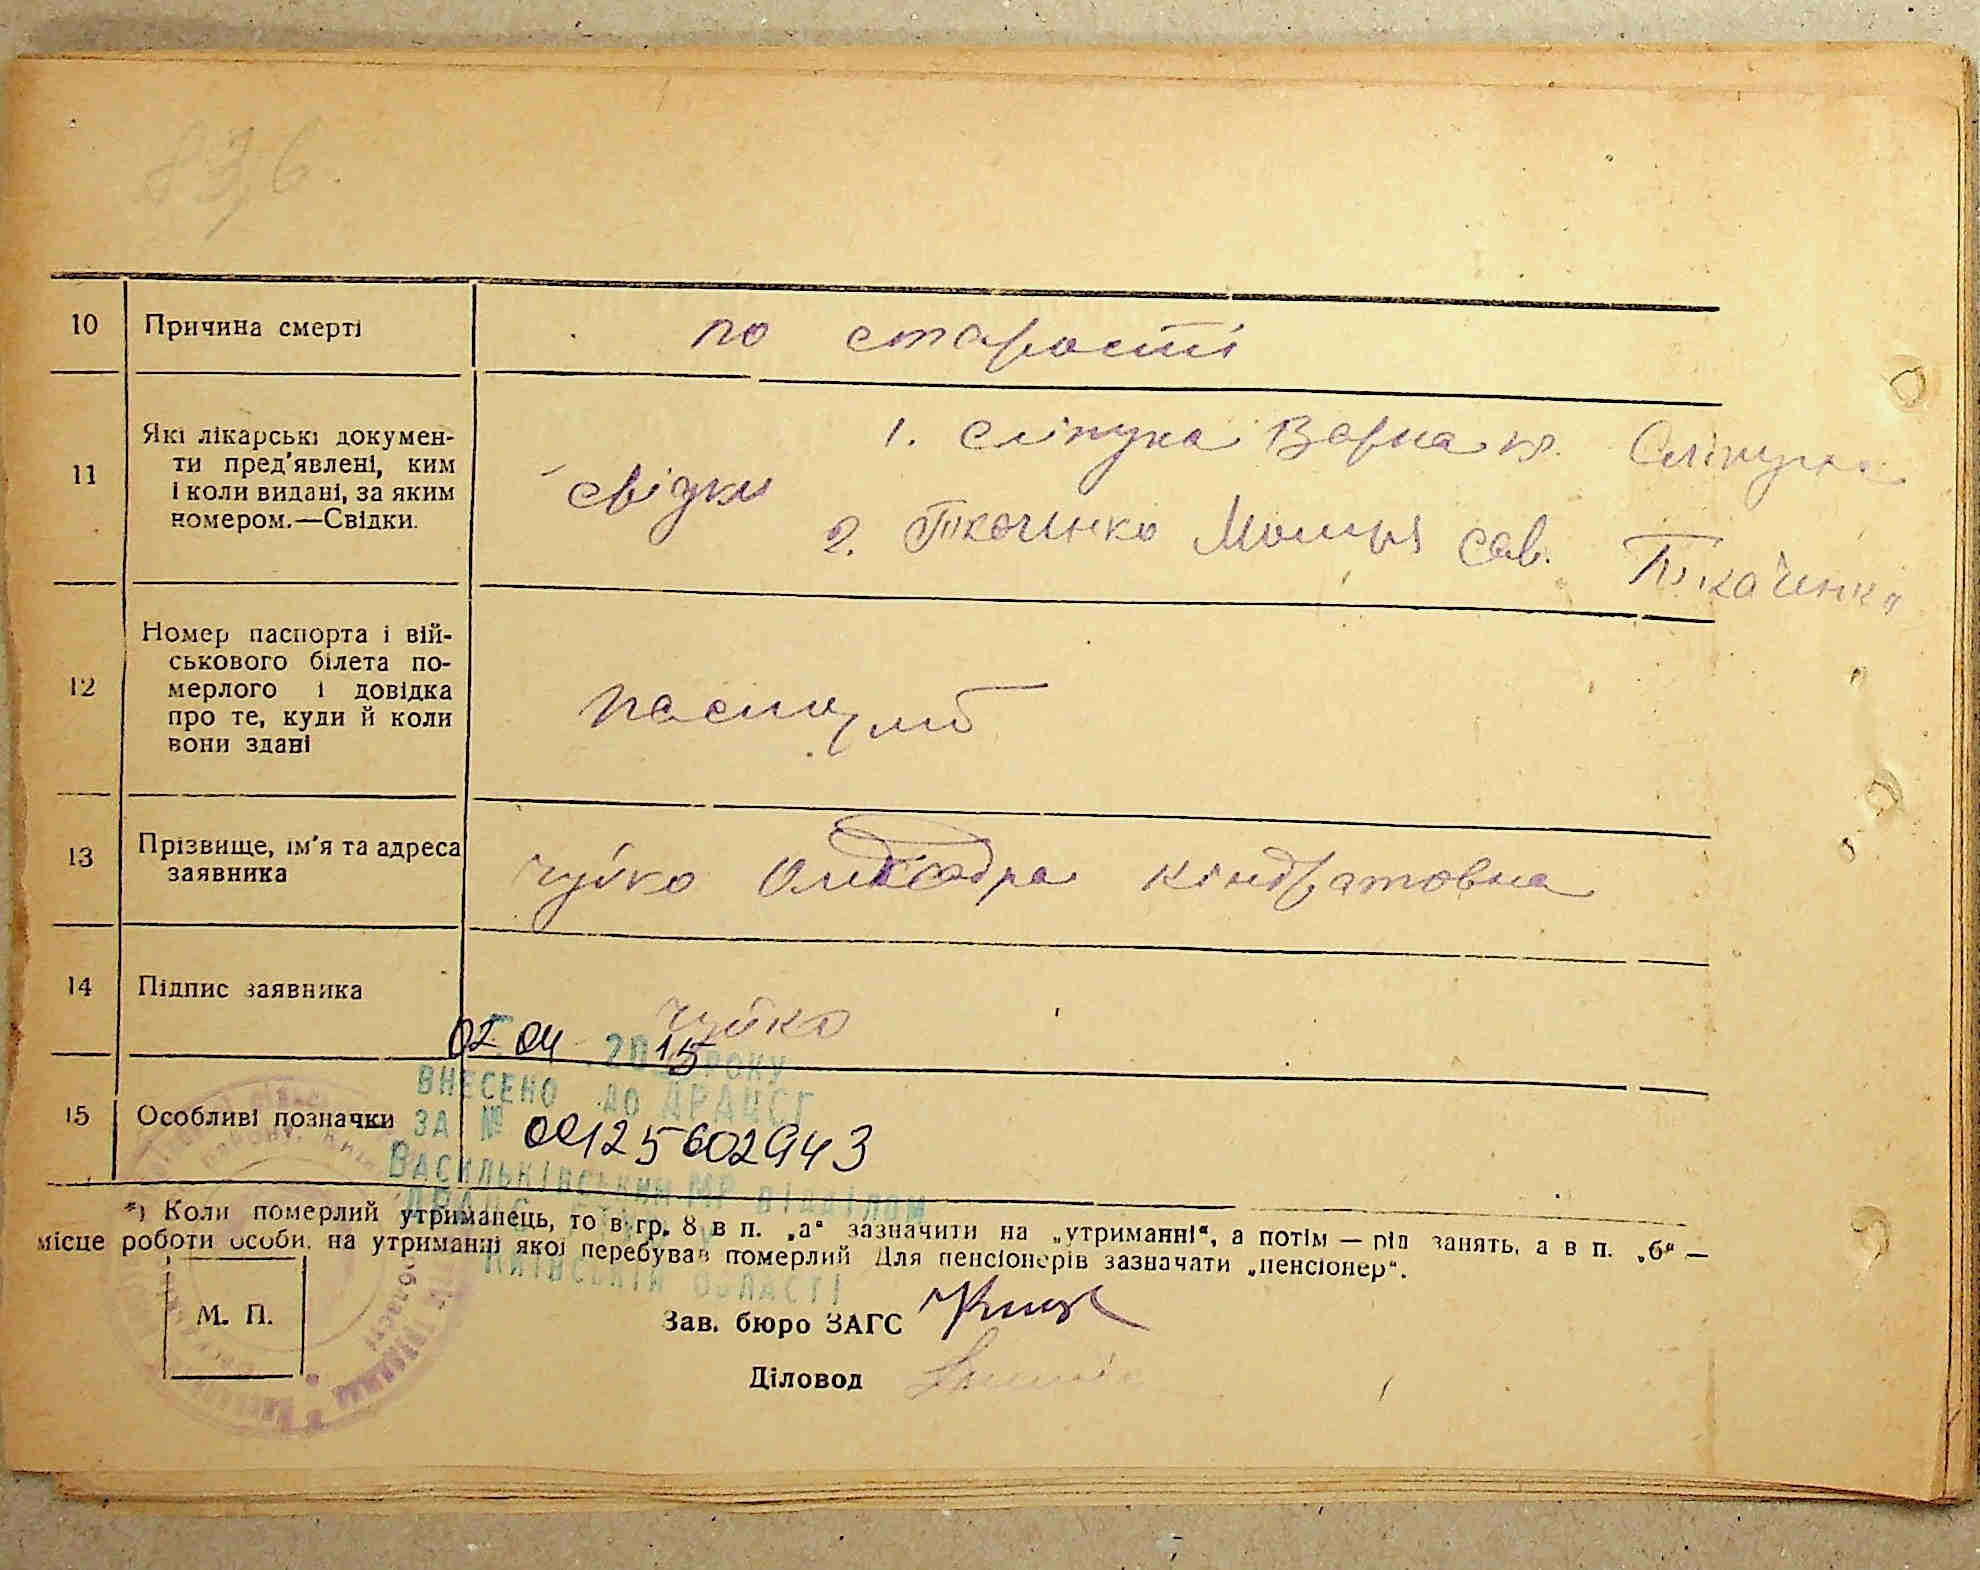 836.
10 Причина смерті по старості
11 Які лікарські докумен-
ти пред'явлені, ким
і коли видані, за яким
номером.—Свідки.
свідки
1. Сліпуха Варка Сліпуха
2. Ткаченко Мотря Сав. Ткаченко
12 Номер паспорта і вій-
ськового білета по-
мерлого і довідка
про те, куди й коли
вони здані
паспорт
13 Прізвище, ім'я та адреса
заявника
Чуйко Олександра Кіндратовна
14 Підпис заявника Чуйко
02.04 2015 РОКУ
ВНЕСЕНО ДО ДРАЦСГ
15 Особливі позначки
ЗА № 00125602943
ВАСИЛЬКІВСЬКИМ МР ВІДДІЛОМ
ДРАЦС
КИЇВСЬКІЙ ОБЛАСТІ
*) Коли померлий утриманець, то в гр. 8 в п. „а“ зазначити на „утриманні“, а потім — рід занять, а в п. „б“ —
місце роботи особи, на утриманні якої перебував померлий Для пенсіонерів зазначати „пенсіонер“.
М. П.
Зав. бюро ЗАГС
Діловод